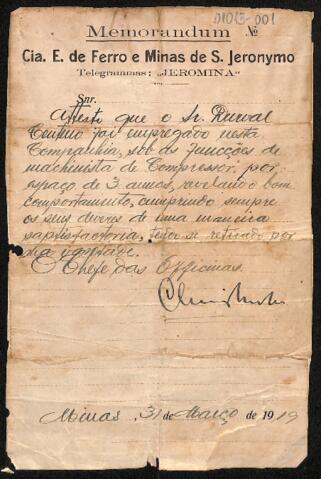 01013-001
Memorandum No
Cia. E. de Ferro e Minas de S. Jeronymo
Telegrammas: „JEROMINA"
Snr.
Attesto que o Sr. Durval
foi empregado nesta
Companhia, sob as funcções de
machinista de Compressor, por
espaço de 3 annos, revelando bom
comportamento, cumprindo sempre
os seus deveres de uma maneira
satisfactoria, se retirado por
sua
O Chefe das Officinas.
Minas, 31 de Março de 1919